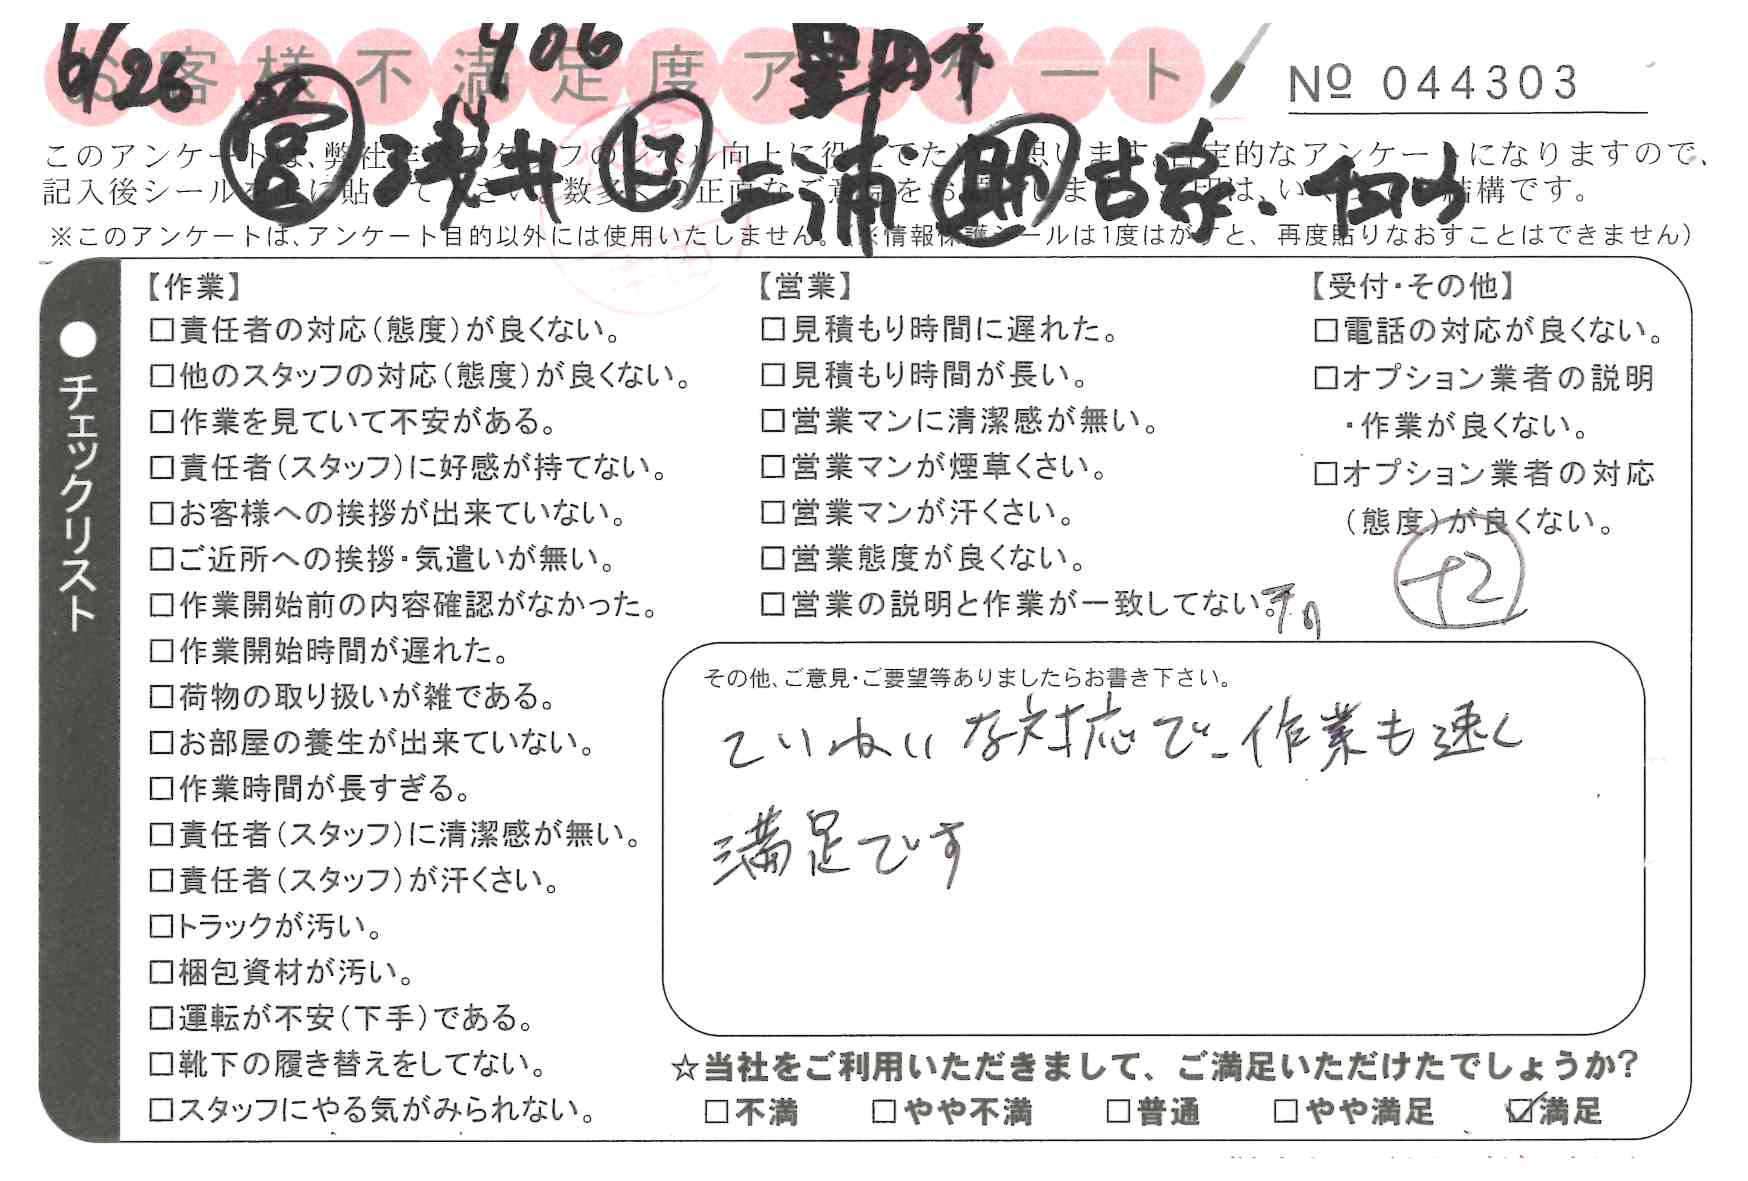 お客様不満足度アンケート
6/26 406 豊田市
No 044303
営 浅井 三浦 助 古家、
このアンケートは、弊社 スタッフのレベル向上に役立てたいと思います。否定的なアンケートになりますので、
記入後シールを上に貼ってください。数多くの正直なご意見をお 結構です。
※このアンケートは、アンケート目的以外には使用いたしません。（※情報保護シールは1度はがすと、再度貼りなおすことはできません）
●チェックリスト
【作業】
□責任者の対応（態度）が良くない。
□他のスタッフの対応（態度）が良くない。
□作業を見ていて不安がある。
□責任者（スタッフ）に好感が持てない。
□お客様への挨拶が出来ていない。
□ご近所への挨拶・気遣いが無い。
□作業開始前の内容確認がなかった。
□作業開始時間が遅れた。
□荷物の取り扱いが雑である。
□お部屋の養生が出来ていない。
□作業時間が長すぎる。
□責任者（スタッフ）に清潔感が無い。
□責任者（スタッフ）が汗くさい。
□トラックが汚い。
□梱包資材が汚い。
□運転が不安（下手）である。
□靴下の履き替えをしてない。
□スタッフにやる気がみられない。
【営業】
□見積もり時間に遅れた。
□見積もり時間が長い。
□営業マンに清潔感が無い。
□営業マンが煙草くさい。
□営業マンが汗くさい。
□営業態度が良くない。
□営業の説明と作業が一致してない。
【受付・その他】
□電話の対応が良くない。
□オプション業者の説明
・作業が良くない。
□オプション業者の対応
（態度）が良くない。
+2
その他、ご意見・ご要望等ありましたらお書き下さい。
ていねいな対応で、作業も速く
満足です
☆当社をご利用いただきまして、ご満足いただけたでしょうか?
□不満 □やや不満 □普通 □やや満足 ☑満足